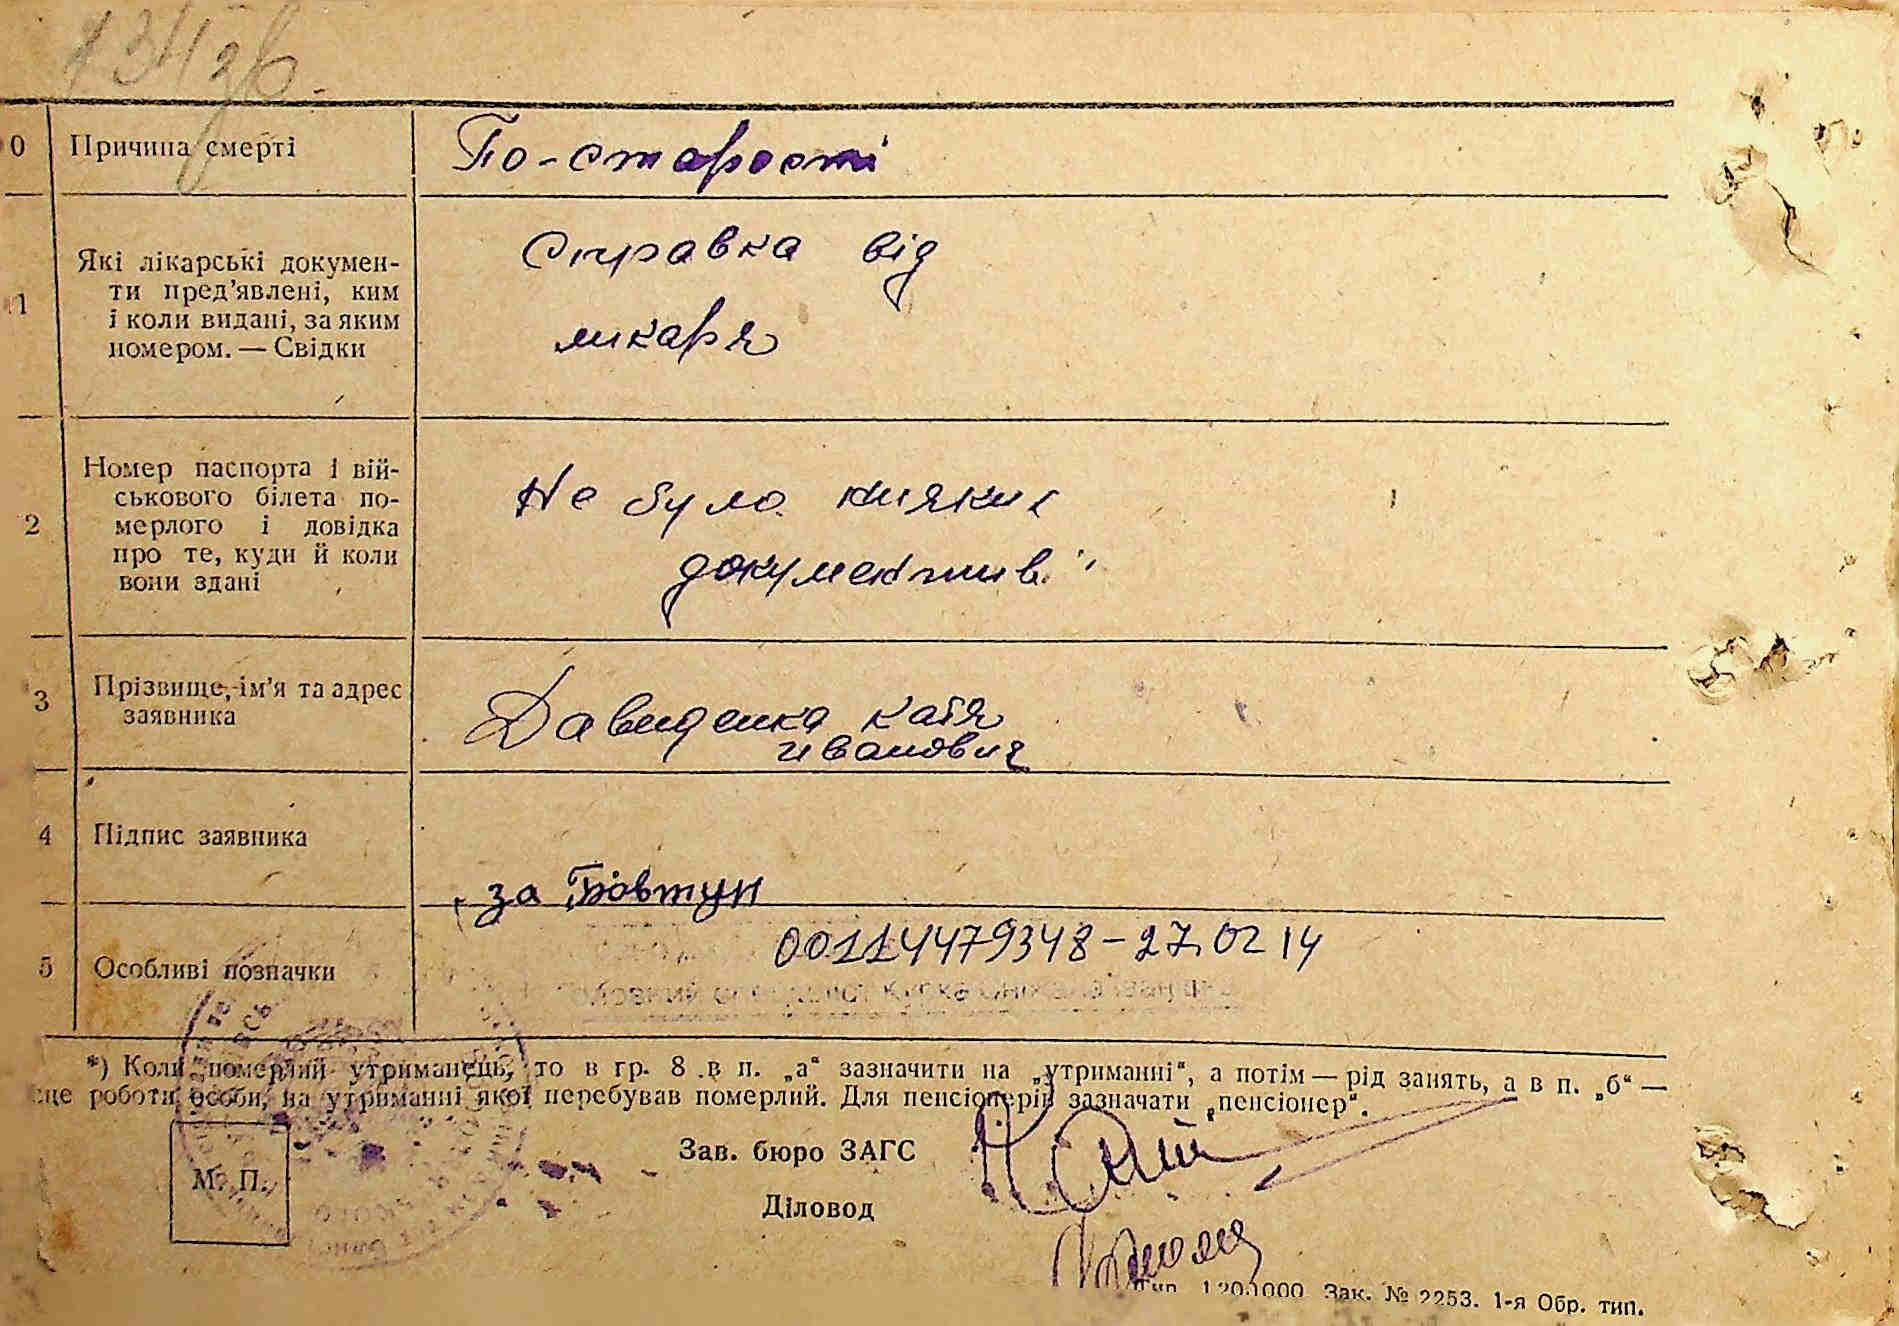 0 Причина смерті
По-старості
1 Які лікарські докумен-
ти пред'явлені, ким
і коли видані, за яким
номером. — Свідки
Справка від
ликаря
2 Номер паспорта і вій-
ськового білета по-
мерлого і довідка
про те, куди й коли
вони здані
Не було нияких
документив
3 Прізвище, ім'я та адрес
заявника
Давиденко Катя
иванович
4 Підпис заявника
за Бовтун
5 Особливі позначки
00114479348-27.02 14
*) Коли померлий утриманець, то в гр. 8 в п. „а“ зазначити на „утриманні“, а потім — рід занять, а в п. „б“ —
це роботи особи, на утриманні якої перебував померлий. Для пенсіонерів зазначати „пенсіонер“.
М. П.
Зав. бюро ЗАГС
Діловод
Зак. № 2253. 1-я Обр. тип.